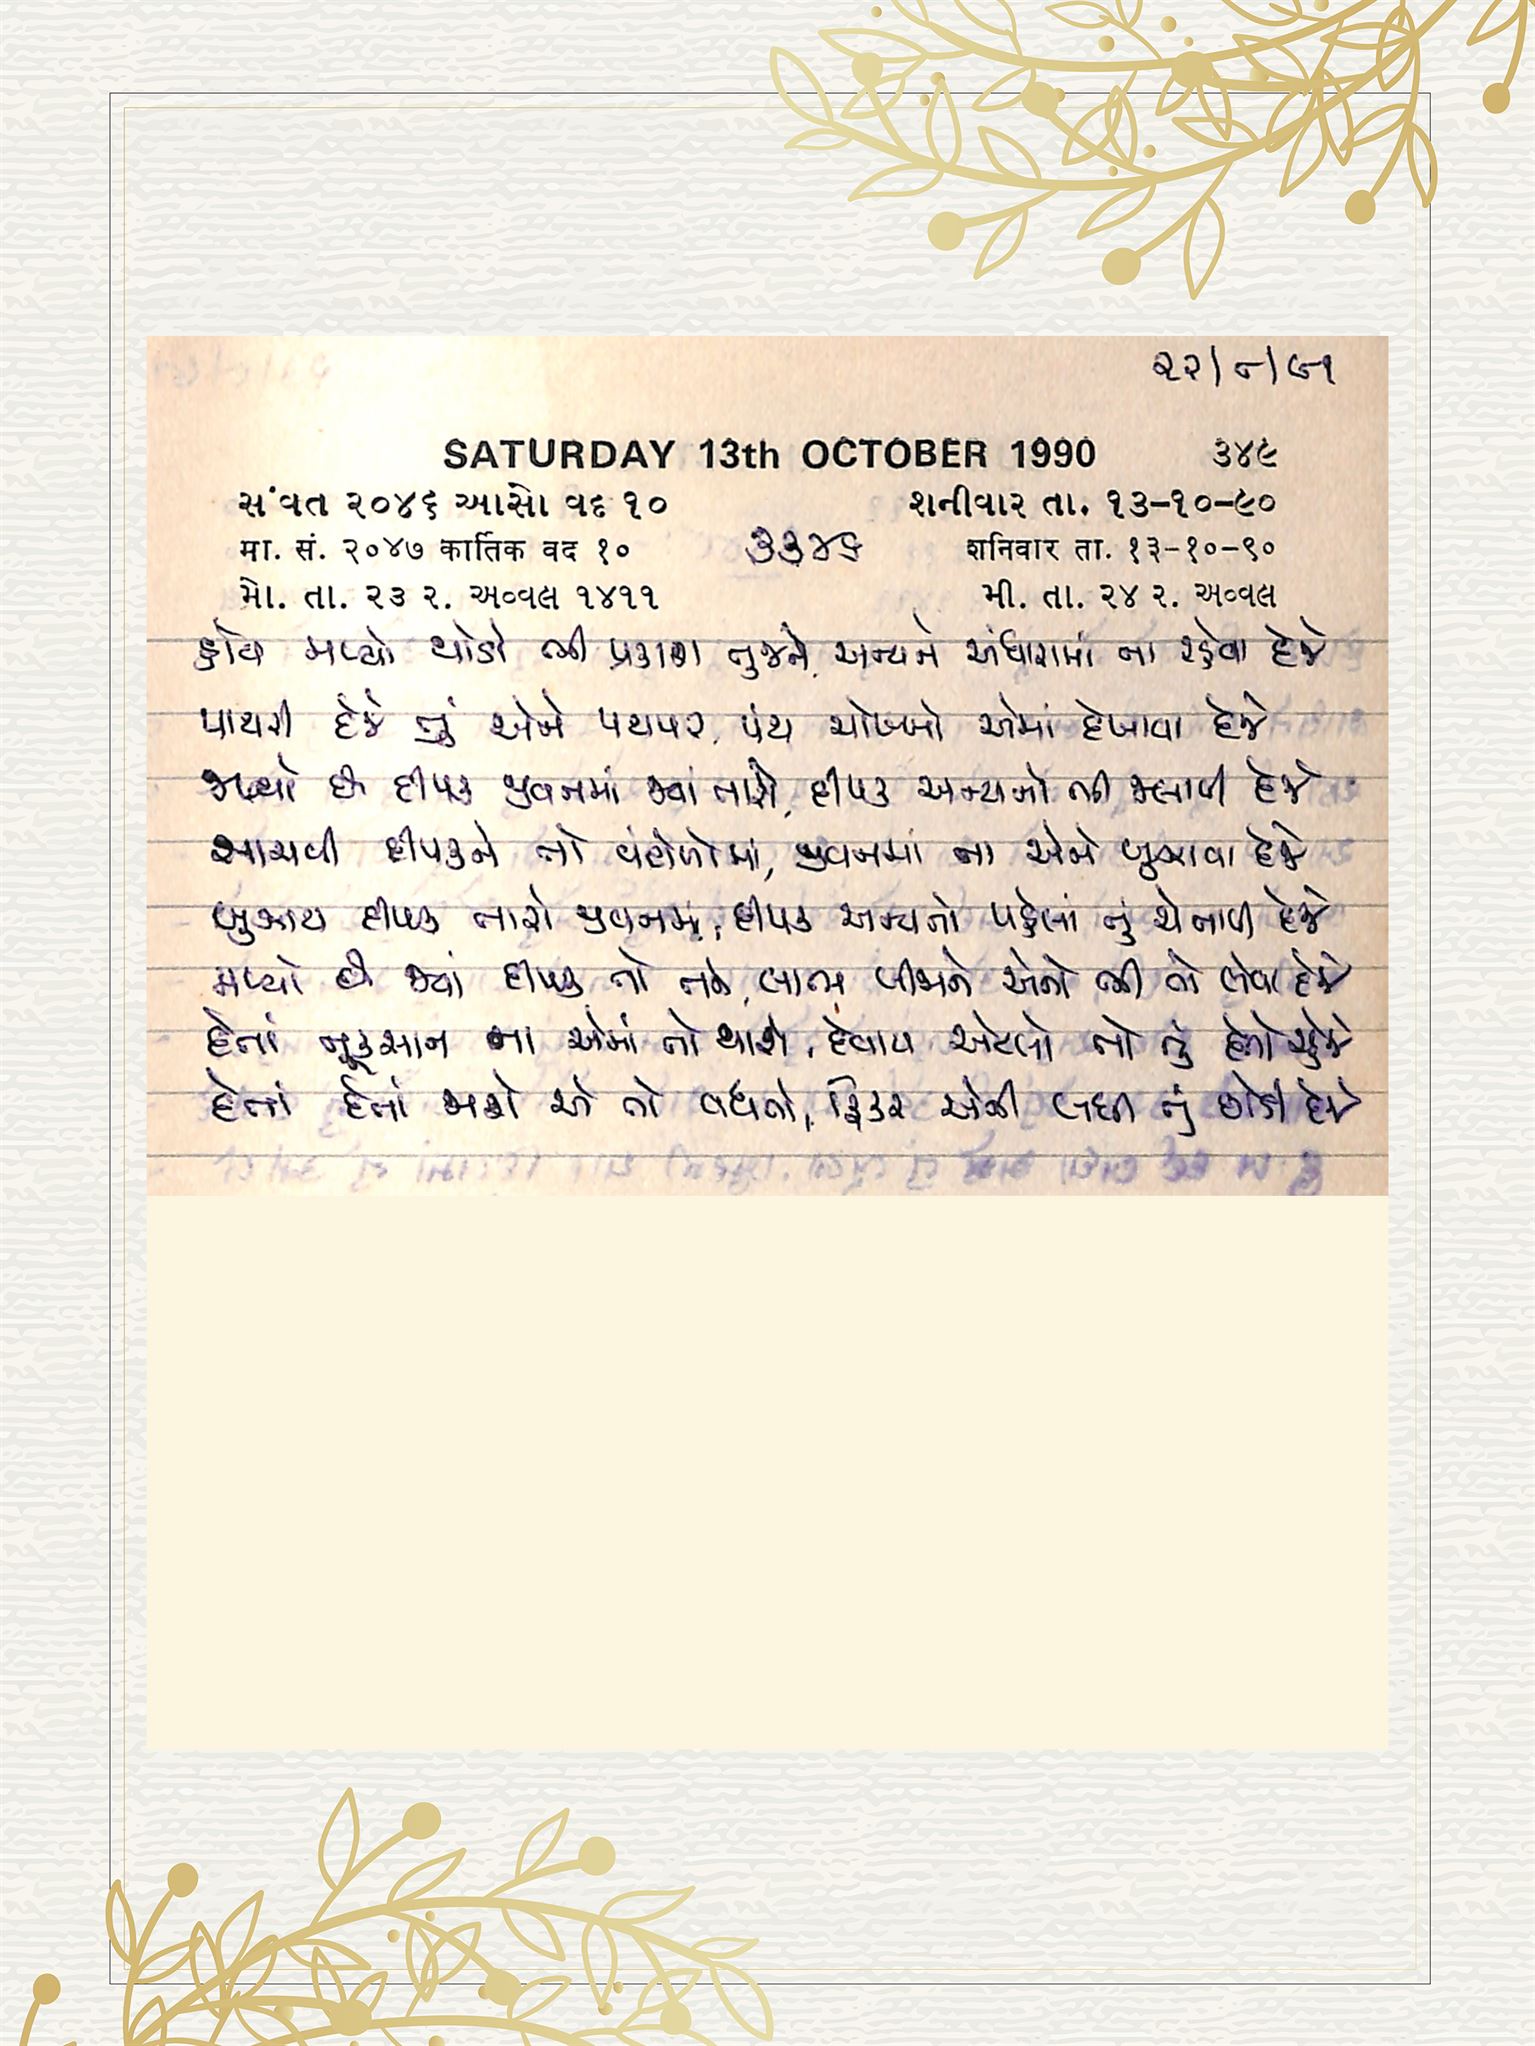 ૨૨/૮/૯૧
SATURDAY 13th OCTOBER 1990 ૩૪૯
સંવત ૨૦૪૬ આસો વદ ૧૦ શનીવાર તા. ૧૩-૧૦-૯૦
मा. सं. २०४७ कार्तिक वद १० ૩૩૪૬ शनिवार ता. १३-१०-९०
મો. તા. ૨૩ ર. અવ્વલ ૧૪૧૧ મી. તા. ૨૪ ર. અવ્વલ
હોય મળ્યો થોડો ભી પ્રકાશ તુજને, અન્યને અંધારામાં ના રહેવા દેજે
પાથરી દેજે તું એને પથપર, પંથ ચોખ્ખો એમાં દેખાવા દેજે
જલ્યો છે દીપક જીવનમાં જ્યાં તારો, દીપક અન્યનો ભી જલાવી દેજે
સાચવી દીપકને તો વંટોળોમાં, જીવનમાં ના એને બુઝાવા દેજે
બુઝાય દીપક તારો જીવનમાં, દીપક અન્યનો પહેલાં તું ચેતાવી દેજે
મળ્યો છે જ્યાં દીપક તો તને, લાભ બીજાને એનો ભી તો લેવા દેજે
દેતાં નૂકસાન ના એમાં તો થાશે, દેવાય એટલો તો તું દેતો રહેજે
દેતાં દેતાં જાશે એ તો વધતો, ફિકર એની બધી તું છોડી દેજે